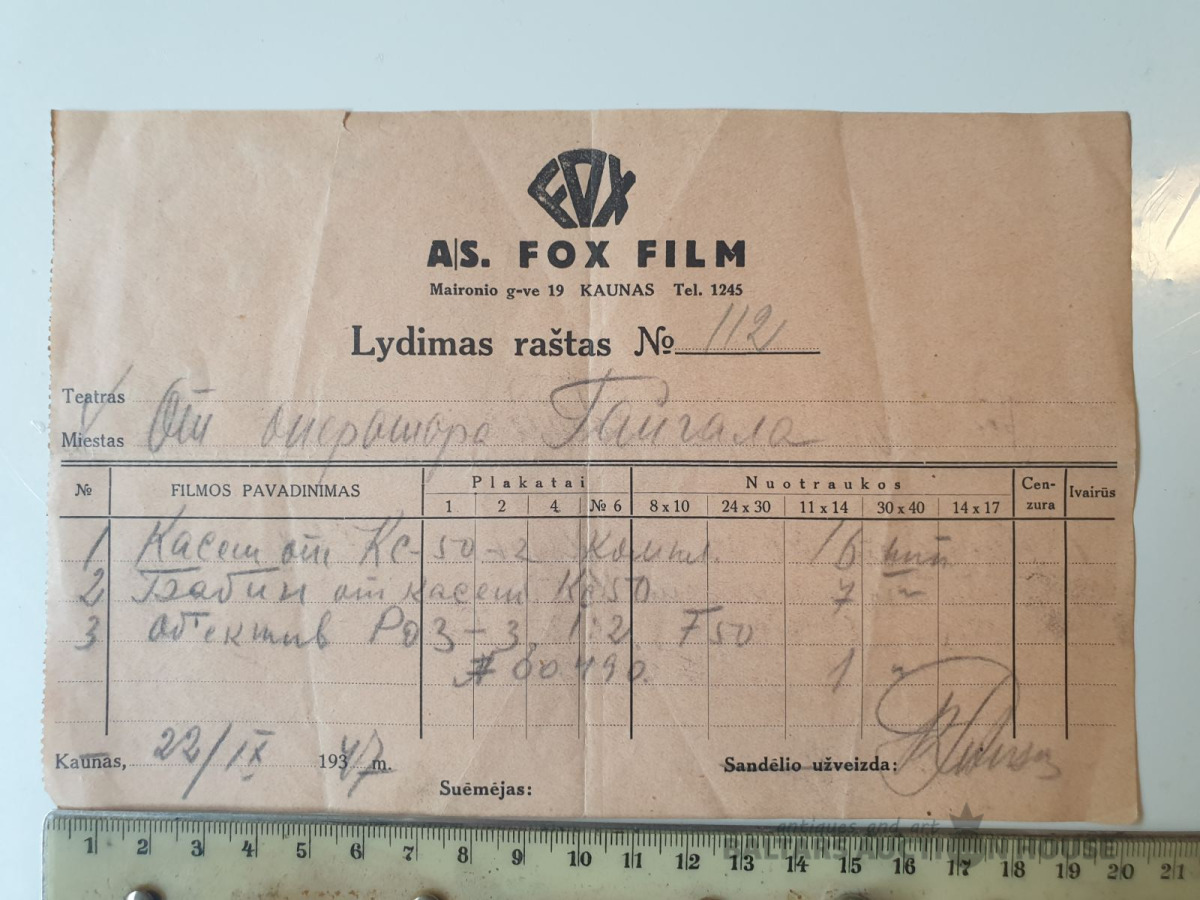 FOX
A|S. FOX FILM
Maironio g-ve 19 KAUNAS Tel. 1245
Lydimas raštas № 112
Teatras
Miestas От оператора Гайгала
№ FILMOS PAVADINIMAS Plakatai Nuotraukos Cen-zura Ivairūs
1 2 4 № 6 8 x 10 24 x 30 11 x 14 30 x 40 14 x 17
1 Касет от КС-50-2 компл. 16 шт
2 Бабин от касет КС50 7 "
3 объектив РО3-3 1:2 F50
# 00490. 1 "
Kaunas, 22/IX 1947 m. Sandėlio užveizda:
Suėmėjas:
1 2 3 4 5 6 7 8 9 10 11 12 13 14 15 16 17 18 19 20 21
antiques and art
BALTARS AUCTION HOUSE